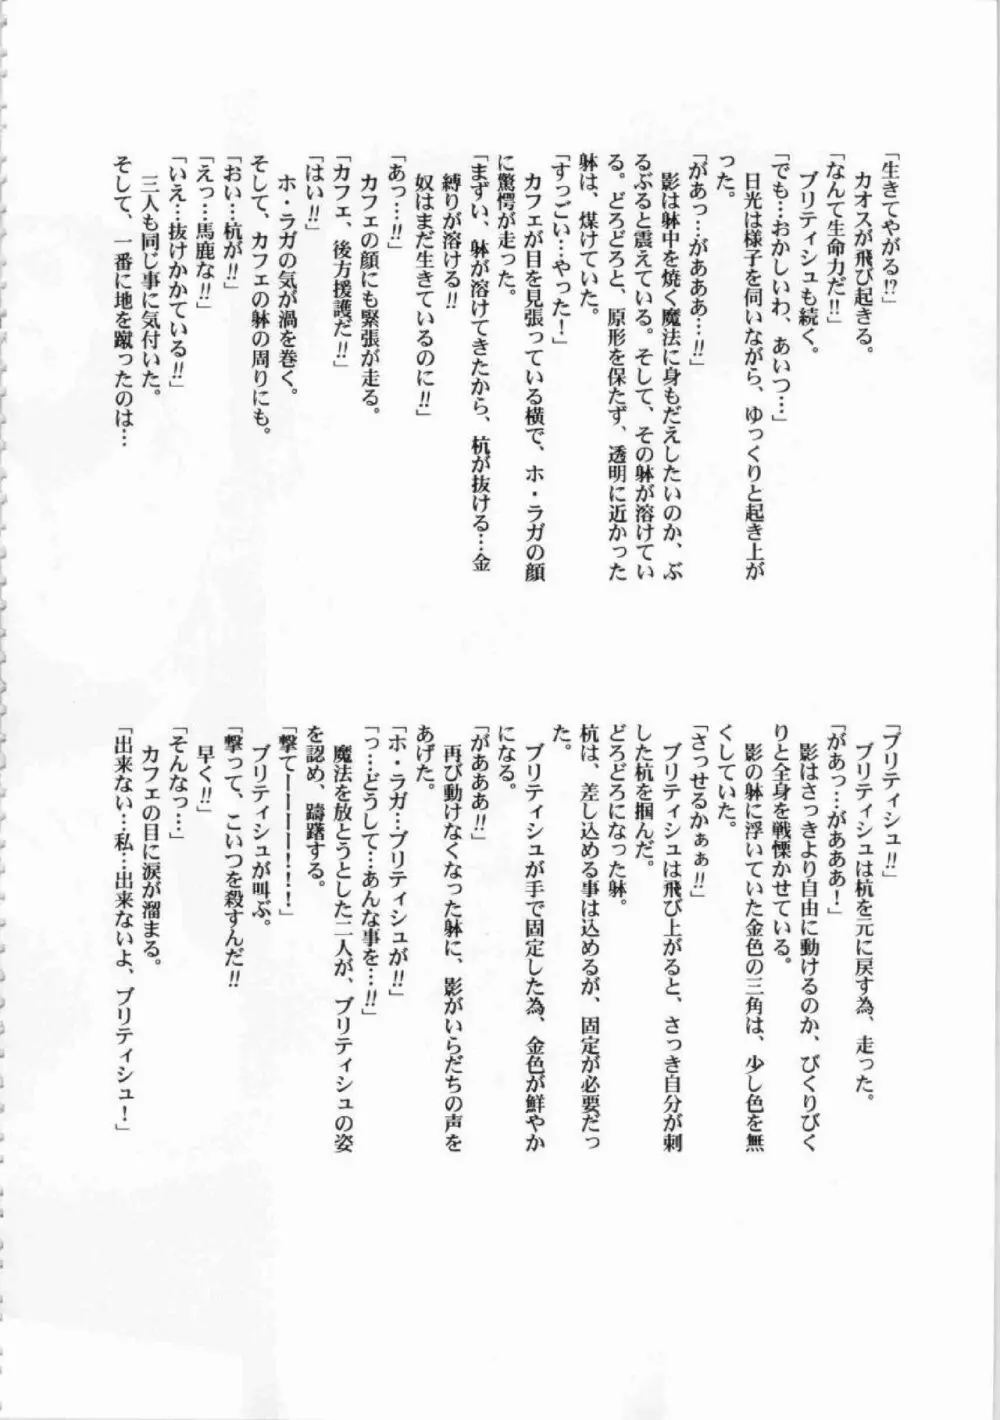 「生きてやがる!?」
　カオスが飛び起きる。
「なんて生命力だ!!」
　ブリティシュも続く。
「でも…おかしいわ、あいつ…」
　日光は様子を伺いながら、ゆっくりと起き上が
った。
「があっ…があああ…!!」
　影は躰中を焼く魔法に身もだえしたいのか、ぶ
るぶると震えている。そして、その躰が溶けてい
る。どろどろと、原形を保たず、透明に近かった
躰は、煤けていた。
「すっごい…やった！」
　カフェが目を見張っている横で、ホ・ラガの顔
に驚愕が走った。
「まずい、躰が溶けてきたから、杭が抜ける…金
　縛りが溶ける!!
　奴はまだ生きているのに!!」
「あっ…!!」
　カフェの顔にも緊張が走る。
「カフェ、後方援護だ!!」
「はい!!」
　ホ・ラガの気が渦を巻く。
そして、カフェの躰の周りにも。
「おい…杭が!!」
「えっ…馬鹿な!!」
「いえ…抜けかかている!!」
　三人も同じ事に気付いた。
そして、一番に地を蹴ったのは…
「ブリティシュ!!」
　ブリティシュは杭を元に戻す為、走った。
「があっ…があああ！」
　影はさっきより自由に動けるのか、びくりびく
りと全身を戦慄かせている。
　影の躰に浮いていた金色の三角は、少し色を無
くしていた。
「さっせるかぁぁ!!」
　ブリティシュは飛び上がると、さっき自分が刺
した杭を掴んだ。
どろどろになった躰。
杭は、差し込める事は込めるが、固定が必要だっ
た。
　ブリティシュが手で固定した為、金色が鮮やか
になる。
「があああ!!」
　再び動けなくなった躰に、影がいらだちの声を
あげた。
「ホ・ラガ…ブリティシュが!!」
「っ…どうして…あんな事を…!!」
　魔法を放とうとした二人が、ブリティシュの姿
を認め、躊躇する。
「撃てーーーーー！！！」
　ブリティシュが叫ぶ。
「撃って、こいつを殺すんだ!!
　早く!!」
「そんなっ…」
　カフェの目に涙が溜まる。
「出来ない…私…出来ないよ、ブリティシュ！」